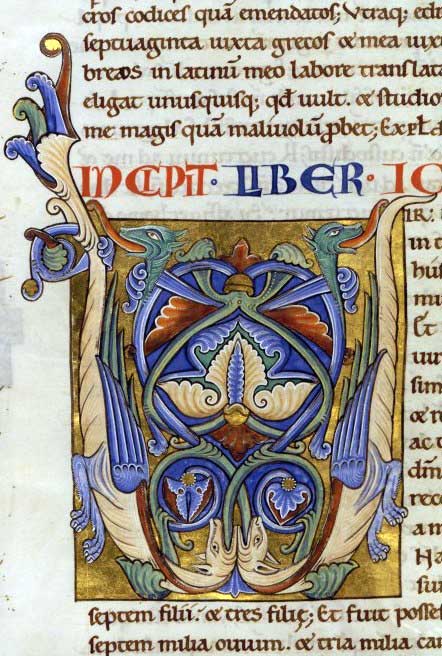 cros codices quā emendatos; Vtraq; edi
septuaginta iuxta grecos & mea iux
breos in latinū meo labore translata
eligat unusquisq; qd̄ uult. & studio
me magis quā maliuolū ꝓbet; Expł
INCIPIT · LIBER · IO
VIR
in
mu
Et
uur
sim
&
ac
dm̄
rec
Ha
sur
septem filii. & tres filię; Et fuit posses
septem milia ouium. & tria milia cam